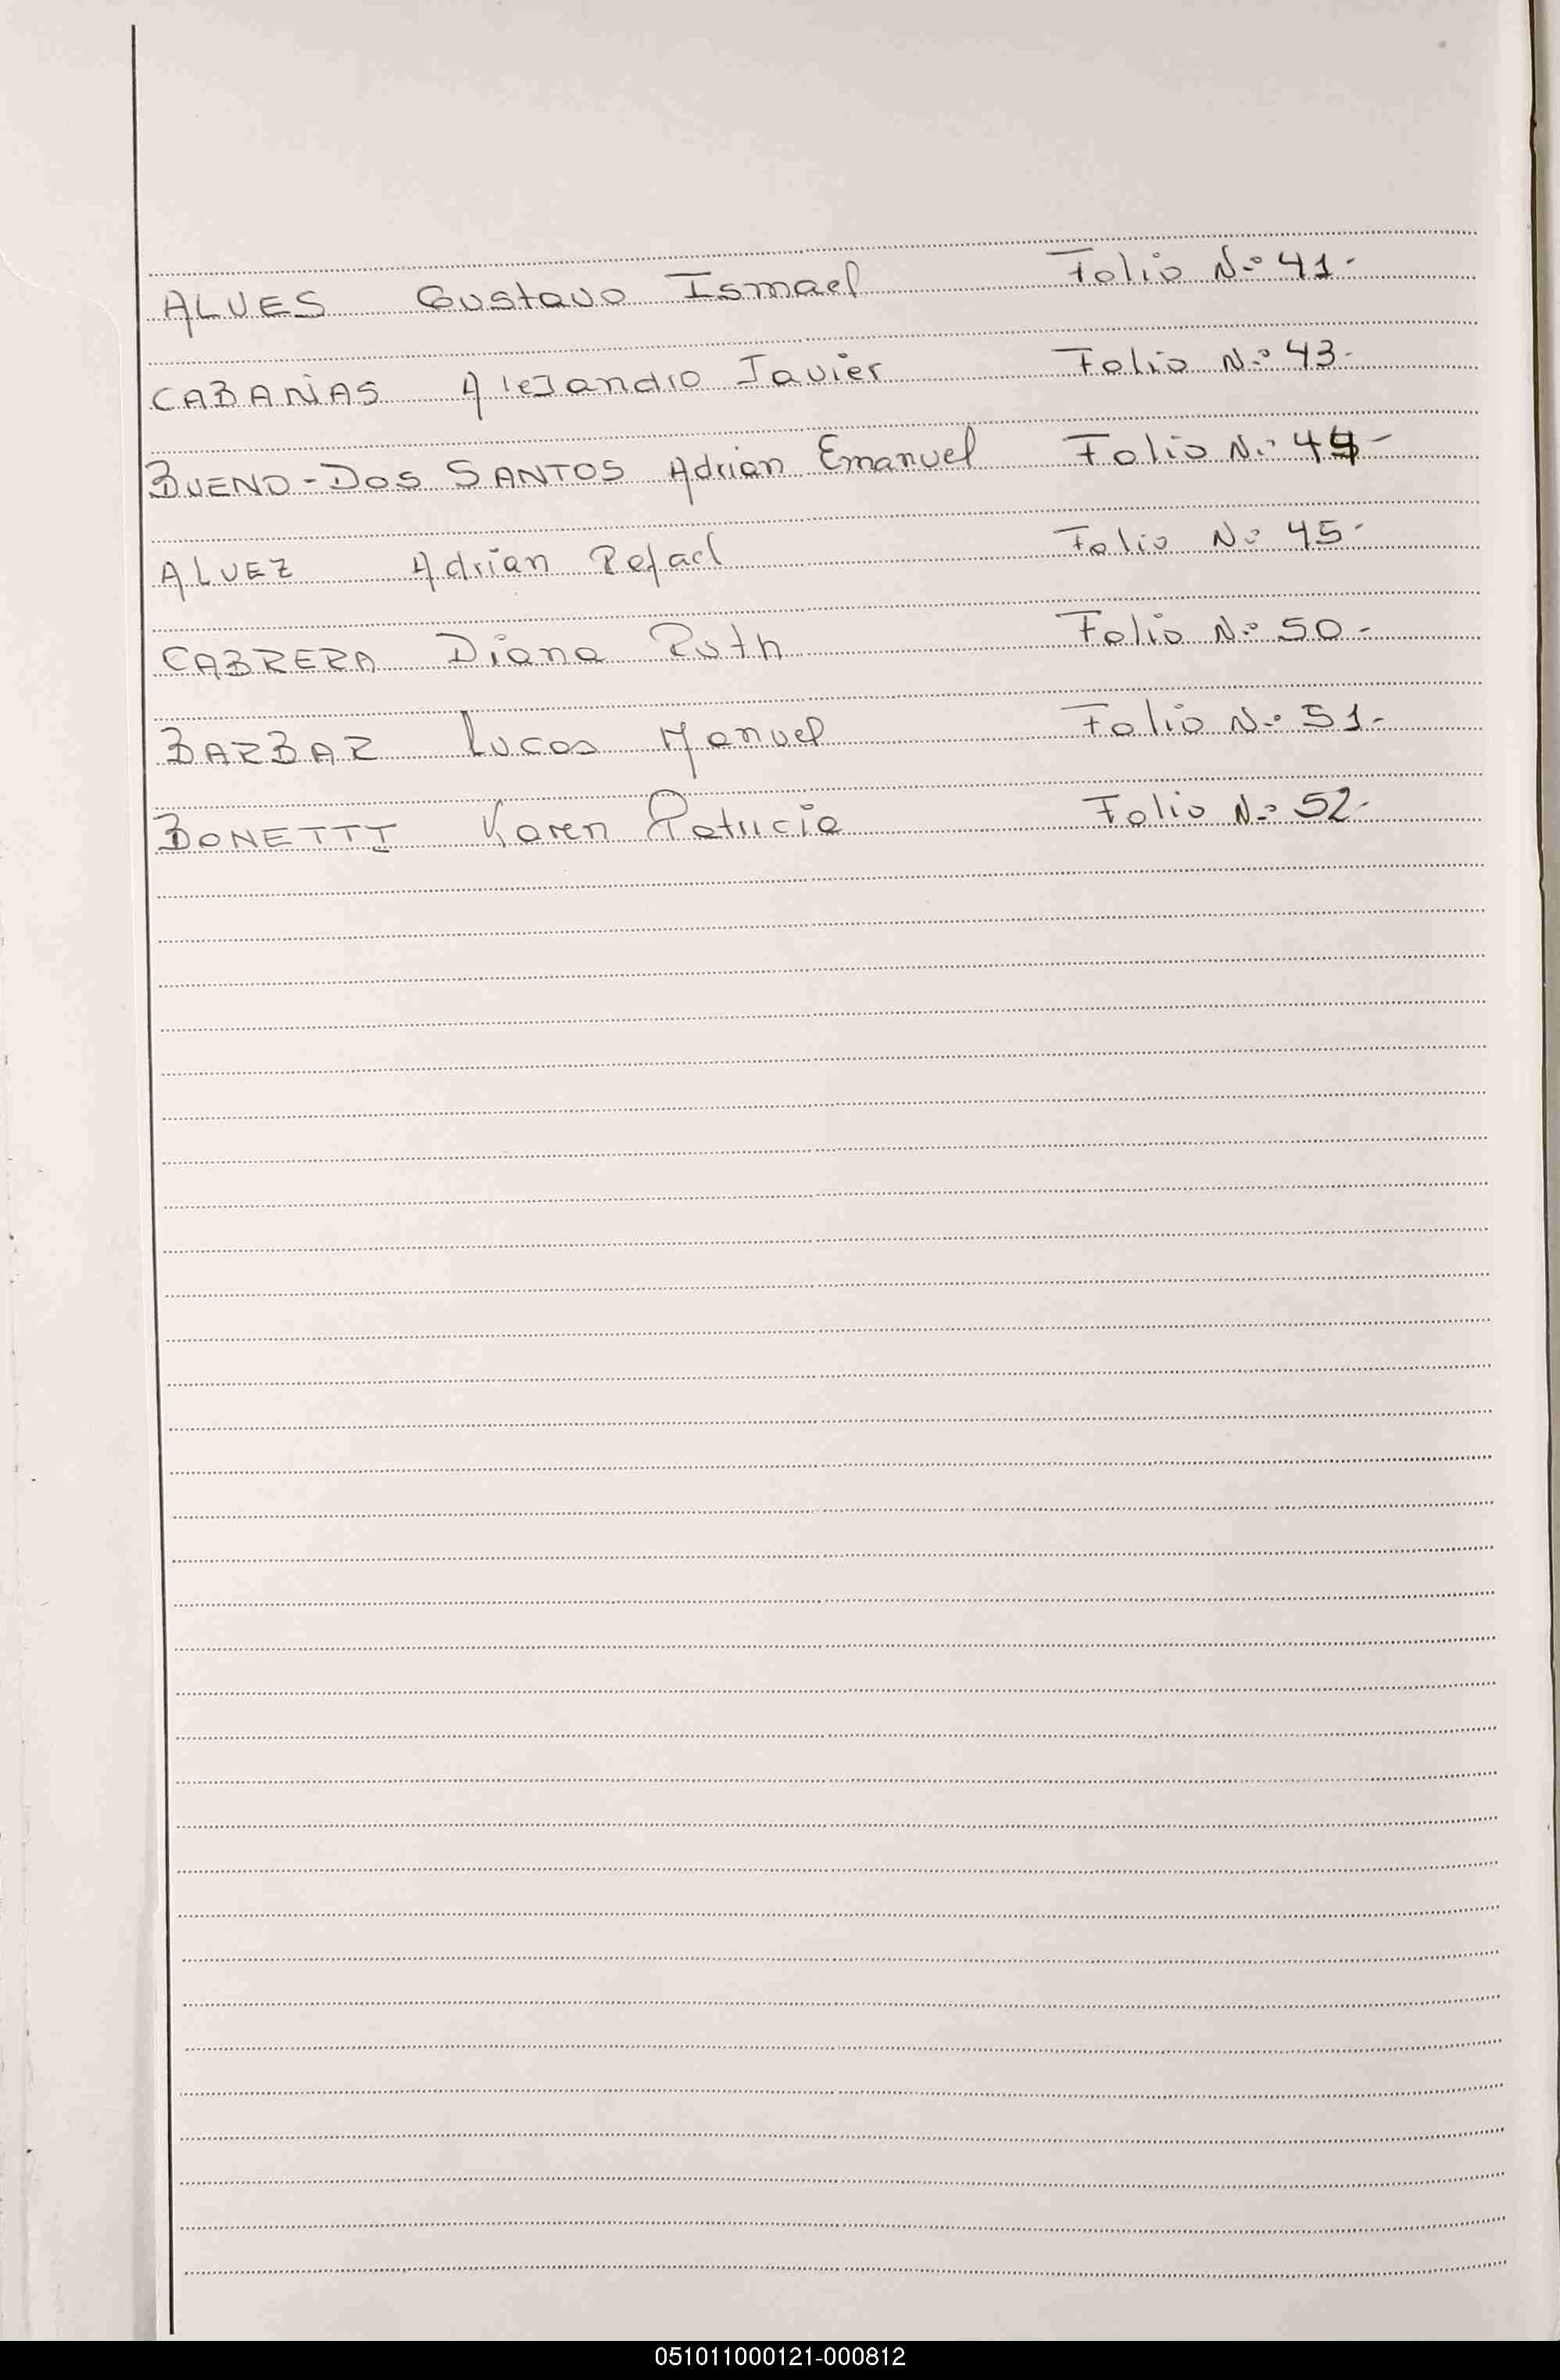 ALVES Gustavo Ismael Folio Nº 41-
CABAÑAS AleJandro Javier Folio Nº 43-
BUENO-DOS SANTOS Adrian Emanuel Folio Nº 44-
ALVEZ Adrián Rafael Folio Nº 45-
CABRERA Diana Ruth Folio Nº 50-
BARBAR Lucas Manuel Folio Nº 51-
BONETTI Karen Patricia Folio Nº 52-
051011000121-000812